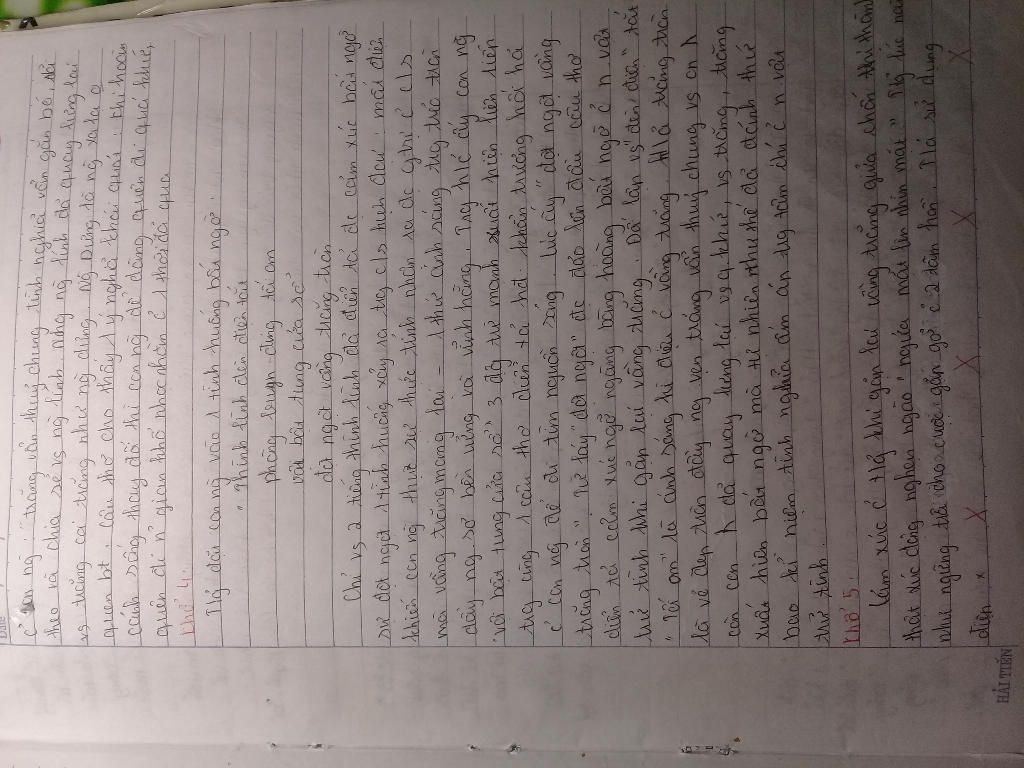 Date
c con ng. Trăng vẫn thuỷ chung tình nghĩa vẫn gắn bó, dõi
theo và chia sẻ vs ng lính. Nhg ng lính đã quay lưng lại
vs trăng coi trăng như ng dưng. Ng dưng là ng xa lạ o
quen bt. Câu thơ cho thấy sự nghệ thái quá. Thì hoàn
cảnh sống thay đổi thì con ng dễ dàng quên đi quá khứ,
quên đi n gian khổ nhọc nhằn c 1 thời đã qua
Khổ 4.
Ng đời con ng vào 1 tình huống bất ngờ.
"Thình lình đèn điện tắt
phòng buyn đinh tối om
vội bật tung cửa sổ
đột ngột vầng trăng tròn
Chỉ vs 2 tiếng thình lình đã diễn tả đc cảm xúc bất ngờ
sự đột ngột 1 tình huống xảy ra trg c/s hiện đại: mất điện
khiến con ng thực sự thức tỉnh nhận ra đc ý nghĩ c c/s
mà vầng trăng mang lại - 1 thứ ánh sáng trg trẻo tiền
đầy ng sơ bền vững và vĩnh hằng. Trg h/c ấy con ng
"vội bật tung cửa sổ" 3 độg từ mạnh xuất hiện liên tiếp
trg cùng 1 câu thơ diễn tả h/đ khẩn trương hối hả
c con ng để đi tìm nguồn sáng. lúc ấy "đột ngột vầng
trăng tròn". Từ láy "đột ngột" đc đảo lên đầu câu thơ
diễn tả cảm xúc ngỡ ngàng bàng hoàng bất ngờ c n vật
trữ tình khi gặp lại vầng trăng. Đối lập vs "đèn điện" tắt
"tối om" là ánh sáng kì diệu c vầng trăng. H/ả trăng tròn
là vẻ đẹp tròn đầy ng vẹn trăng vẫn thuỷ chung vs con h
còn con h đã quay lưng lại vs q khứ, vs trăng, trăng
xuất hiện bất ngờ mà tự nhiên như thế đã đánh thức
bao kỉ niệm tình nghĩa ấm áp trg tâm trí c n vật
trữ tình.
Khổ 5.
Cảm xúc c t/g khi gặp lại vầng trăng quá chân thành
thật xúc động nghẹn ngào "ngửa mặt lên nhìn mặt" Ng lúc mà
nhà ngẩng tới cho cuộc gặp gỡ c 2 tâm hồn. T/g sử dụng
điệp x X X X X
HẢI TIẾN